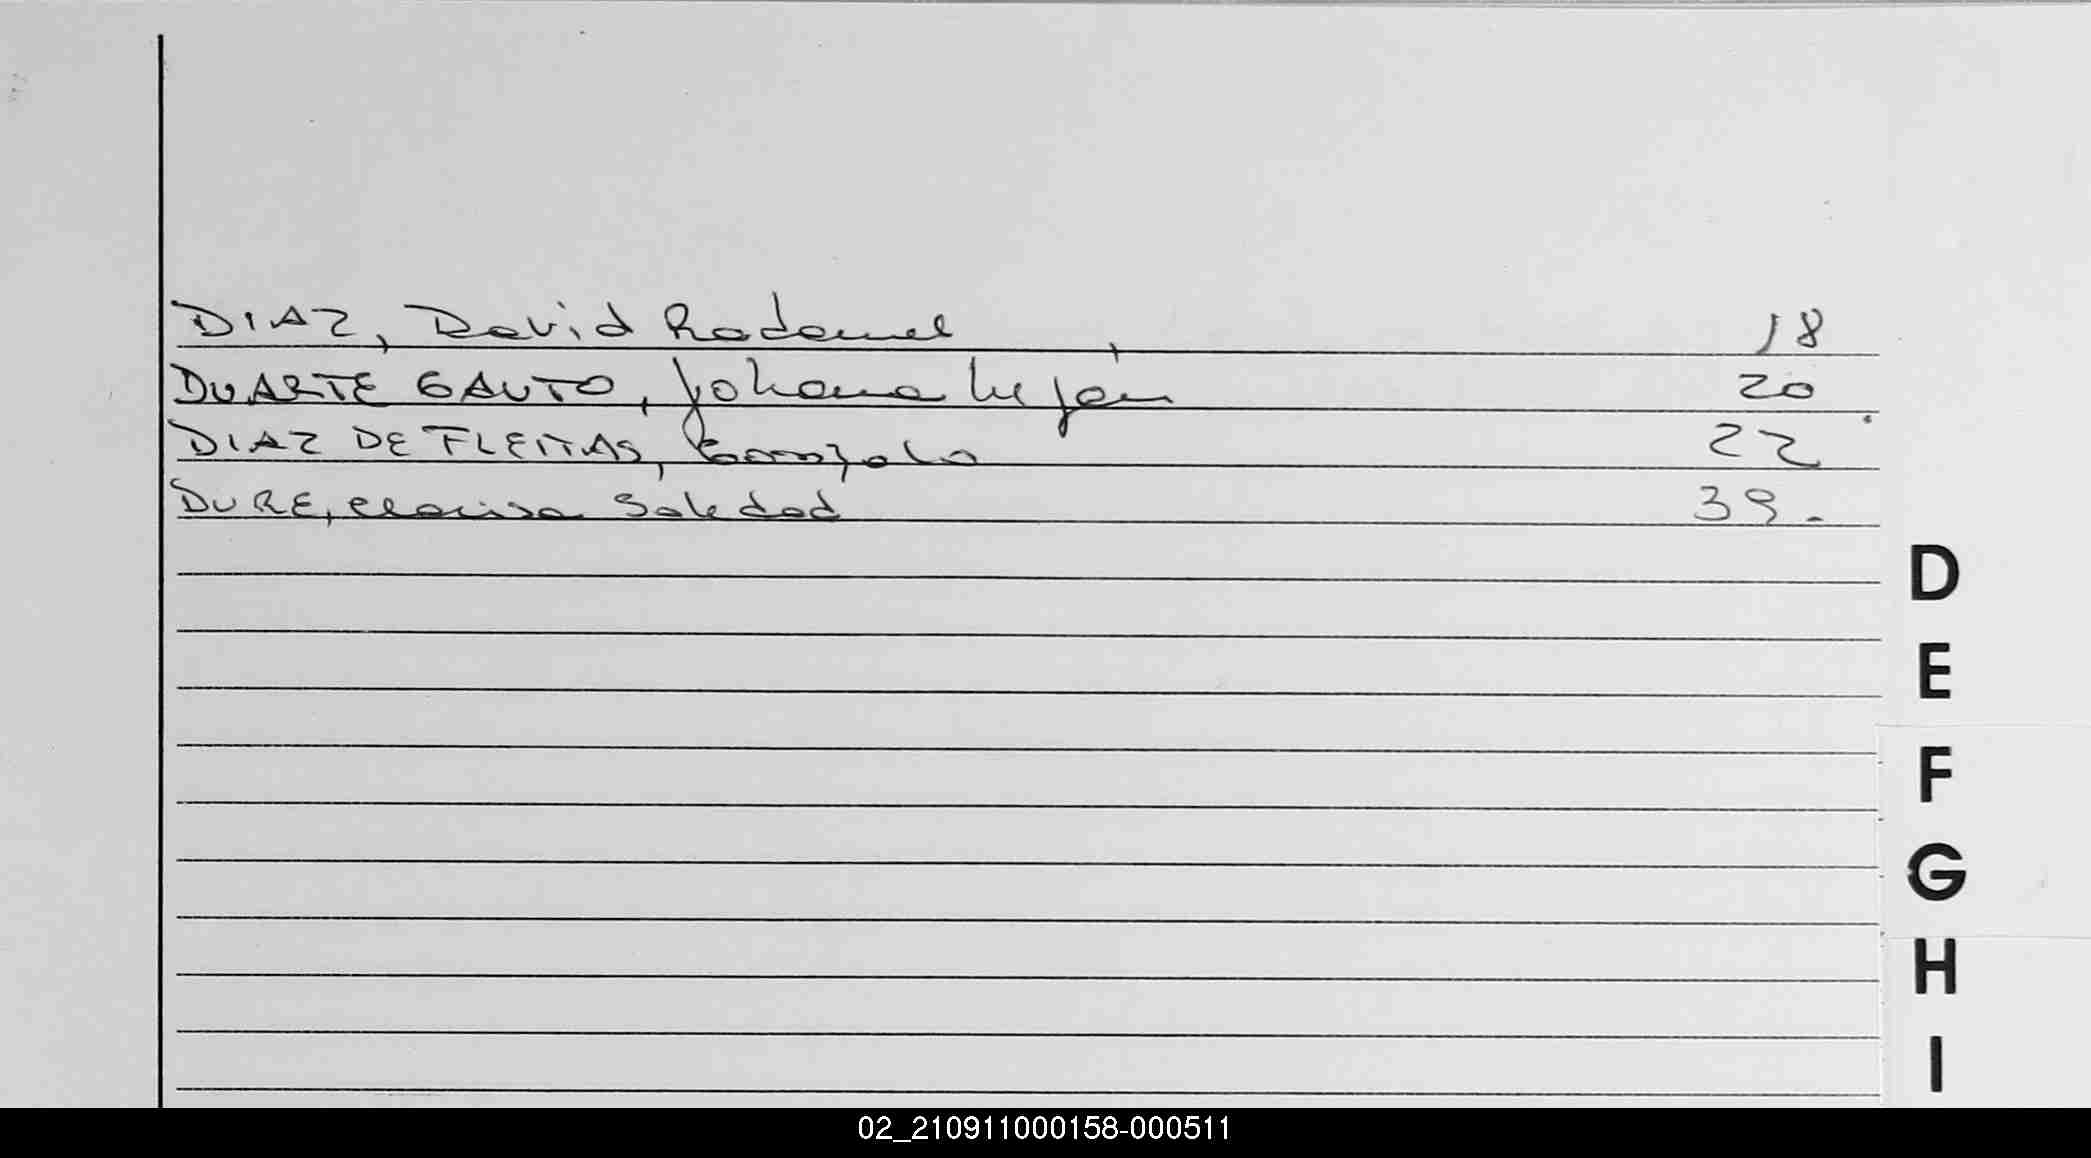 DIAZ, David Rodamel 18
DUARTE GAUTO, Johana Luján 20
DIAZ DE FLEITAS, Gonzalo 22
DURE, Clarisa Soledad 39.
D
E
F
G
H
I
02_210911000158-000511